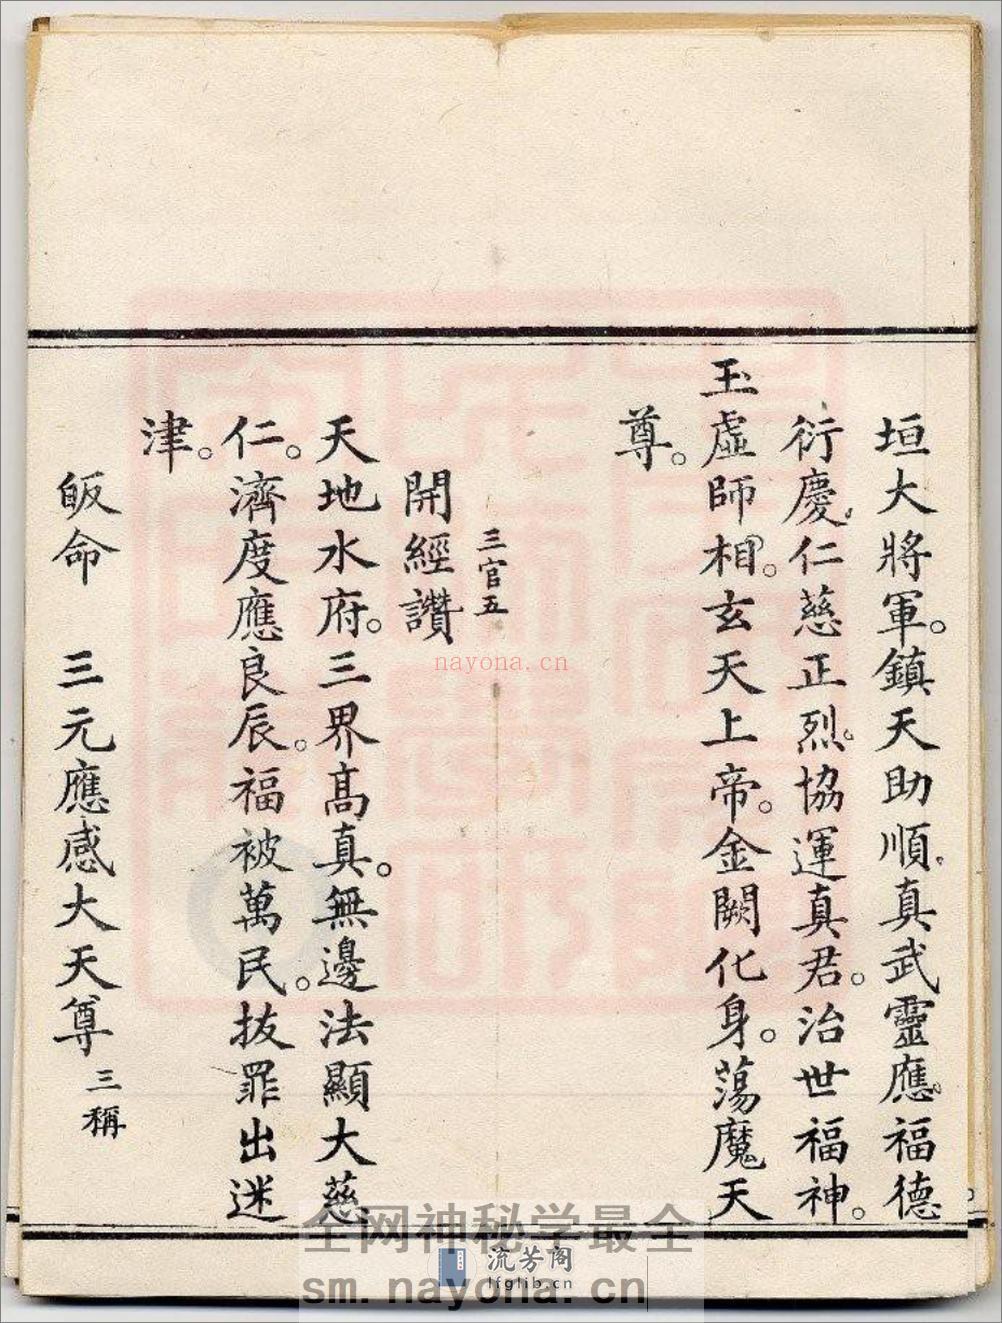 垣大將軍。鎮天助順。真武靈應。福德
衍慶。仁慈正烈。協運真君。治世福神。
玉虛師相。玄天上帝。金闕化身。蕩魔天
尊。
三官五
開經讚
天地水府。三界高真。無邊法顯大慈
仁。濟度應良辰。福被萬民。拔罪出迷
津。
皈命　三元應感大天尊 三稱
nayona.cn
全网神秘学最全
流芳阁
lfglib.cn
sm.nayona.cn